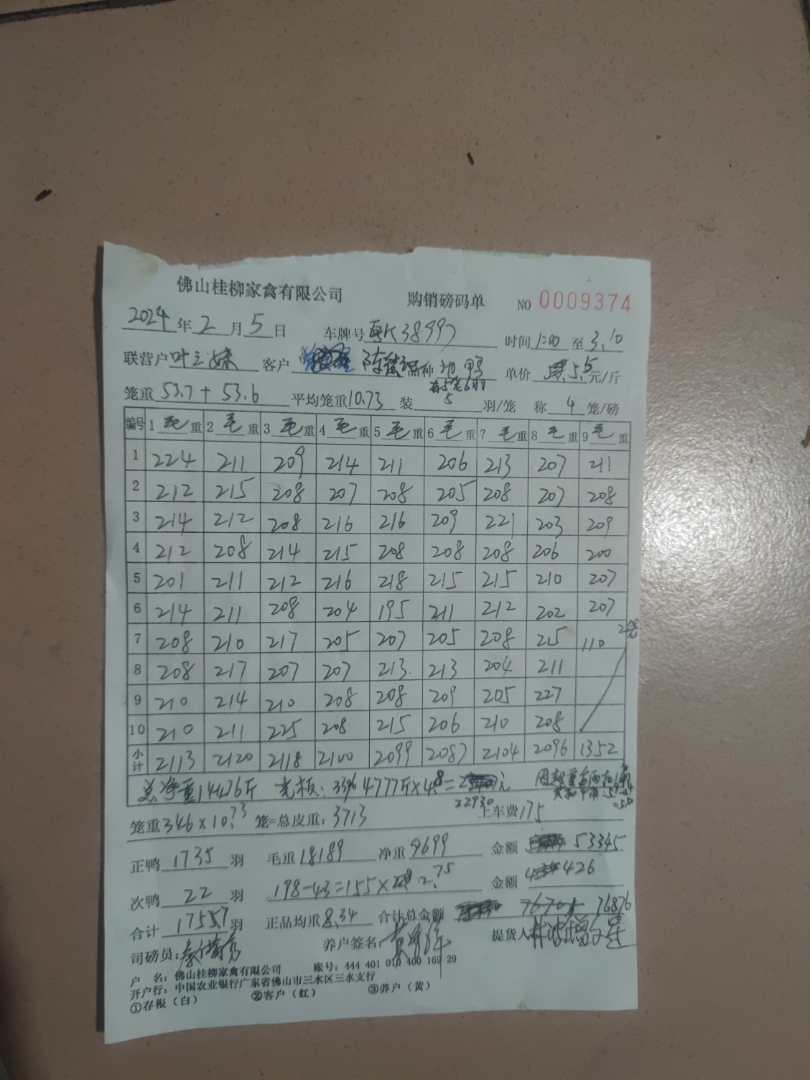 佛山桂柳家禽有限公司 购销磅码单 NO 0009374
2024年2月5日 车牌号 38997 时间1:00至3:10
联营户叶三妹 客户 陈 品种 鸭 单价 5.5元/斤
笼重53.7+53.6 平均笼重10.73 装5羽/笼 称4笼/磅
编号 1毛重 2毛重 3毛重 4毛重 5毛重 6毛重 7毛重 8毛重 9毛重
1 224 211 209 214 211 206 213 207 211
2 212 215 208 207 208 205 208 207 208
3 214 212 208 216 216 209 221 203 209
4 212 208 214 215 208 208 208 206 200
5 201 211 212 216 218 215 215 210 207
6 214 211 208 204 195 211 212 202 207
7 208 210 217 205 207 205 208 215 110
8 208 217 207 207 213 213 204 211
9 210 214 210 208 208 209 205 227
10 210 211 225 208 215 206 210 208
小计 2113 2120 2118 2100 2099 2087 2104 2096 1352
总净重14476斤 33% 4777斤×4.8= 元
22930
笼重346×10.73 笼=总皮重:3713 上车费175
正鸭1735羽 毛重18189 净重9699 金额 53345
次鸭22羽 198-43=155× 2.75 金额 426
合计1757羽 正品均重8.34 合计总金额 76701 76876
司磅员: 养户签名: 提货人
户 名:佛山桂柳家禽有限公司 账号:444 401 010 400 169 29
开户行:中国农业银行广东省佛山市三水区三水支行
①存根(白) ②客户(红) ③养户(黄)